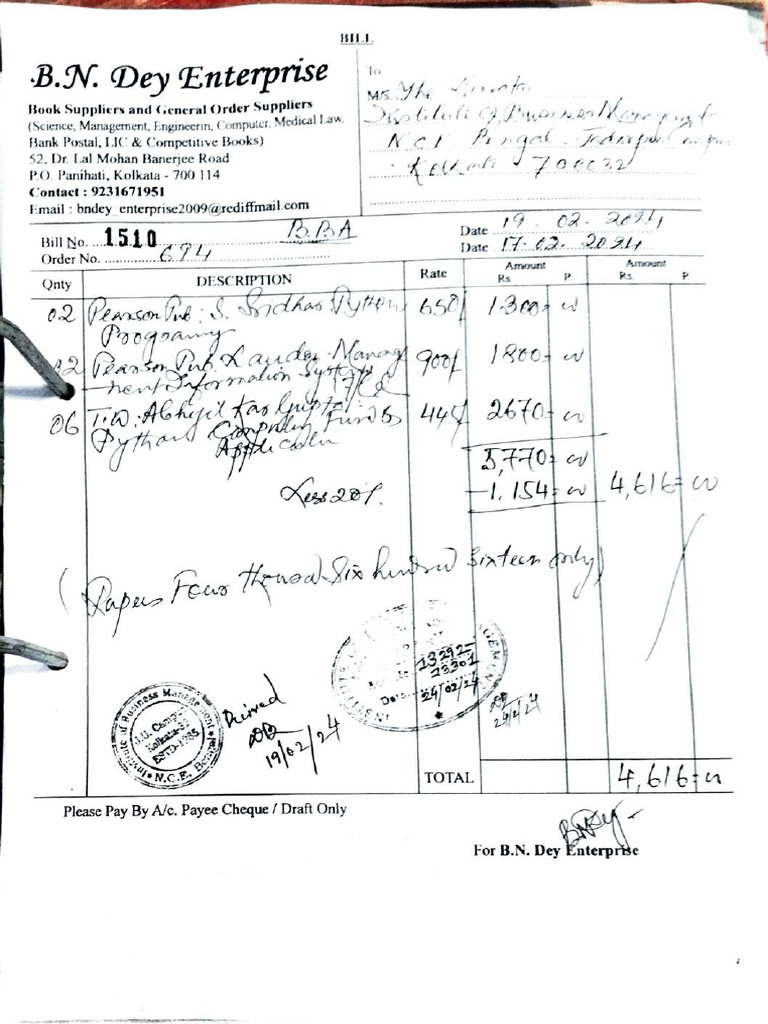 BILL
B.N. Dey Enterprise
Book Suppliers and General Order Suppliers
(Science, Management, Engineerin, Computer, Medical Law,
Bank Postal, LIC & Competitive Books)
52, Dr. Lal Mohan Banerjee Road
P.O. Panihati, Kolkata - 700 114
Contact : 9231671951
Email : bndey_enterprise2009@rediffmail.com
To
M/s. The
Institute of Business Management
NCE Bengal.
Kolkata - 700032
Bill No. 1510 BBA
Order No. 694
Date 19.02.2024
Date 17.02.2024
Qnty DESCRIPTION Rate Amount Rs. P. Amount Rs. P
02 Pearson Pub: S. Sridhar Python 650/ 1300=00
02 Pearson Pub. Laudon: Manage 900/ 1800=00
ment Information System
06 T.W: Abhijit Kar Gupta: 445/ 2670=00
Python Computer
5,770=00
Less 20%. -1,154=00 4,616=00
(Rupees Four Thousand Six hundred sixteen only)
Institute of Business Management
J.U. Campus
Kolkata-32
ESTD-1985
N.C.E. Bengal
19/02/24
13292-
13301
Date 24/02/24
24/2/24
TOTAL 4,616=00
Please Pay By A/c. Payee Cheque / Draft Only
BNDey
For B.N. Dey Enterprise